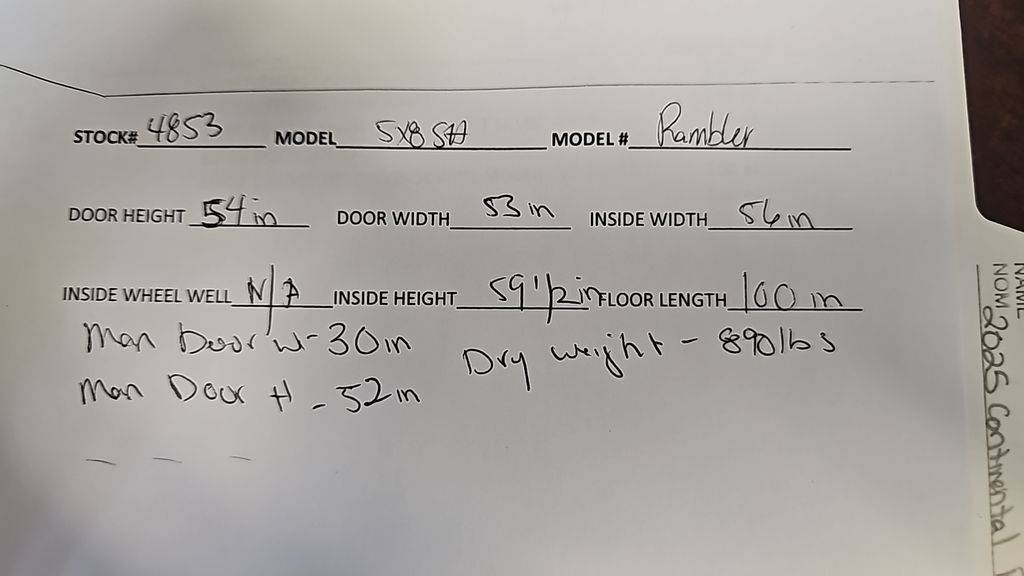 STOCK# 4853 MODEL 5x8 SA MODEL # Rambler
DOOR HEIGHT 54 in DOOR WIDTH 53 in INSIDE WIDTH 56 in
INSIDE WHEEL WELL N/A INSIDE HEIGHT 59 1/2 in FLOOR LENGTH 100 in
Man Door W - 30 in
Dry weight - 890 lbs
Man Door H - 52 in
NAME
NOM 2025 Continental